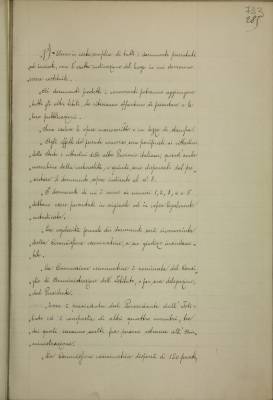 733
285
9) Elenco in carta semplice di tutti i documenti presentati
ed inviati, con l'esatta indicazione del luogo in cui dovranno
essere restituiti.
Ai documenti prodotti i concorrenti potranno aggiungere
tutti gli altri titoli, che riterranno opportuno di presentare e le
loro pubblicazioni.
Sono escluse le opere manoscritte o in bozze di stampa.
Agli effetti del presente concorso sono parificati ai cittadini
dello Stato i cittadini delle altre Provincie italiane, quand anche
manchino della naturalità, e quindi sono dispensati dal pre-
sentare il documento sopra indicato al n.
I documenti di cui i numeri 1, 2, 3, 4 e 5
debbono essere presentati in originale od in copia legalmente
autenticata.
La regolarità formale dei documenti sarà riconosciuta
dalla Commissione esaminatrice, a suo giudizio insindaca-
bile.
La Commissione esaminatrice è nominata dal Consi-
glio di Amministrazione dell'Istituto, o per sua delegazione,
dal Presidente.
Essa è presieduta dal Presidente dell'Isti-
tuto ed è composta di altri quattro membri,
dei quali saranno scelti fra persone estranee all'Am-
ministrazione.
La Commissione esaminatrice disporrà di 150 punti,